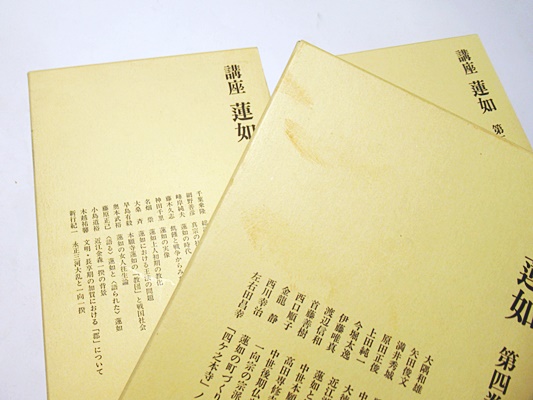 講座 蓮如
千葉乗隆
網野善彦
峰岸純夫 蓮如の時代
藤木久志
神田千里 蓮如の実像
名畑 崇 蓮如上人初期の教化
大桑 斉 蓮如における王法の問題
早島有毅 本願寺蓮如の「教団」と戦国社会
奥本武裕 蓮如の女人往生論
藤原正己 〈語る〉蓮如と〈語られた〉蓮如
小島道裕 近江金森一揆の背景
木越祐馨 文明・長享期の加賀における「郡」について
新行紀一 永正三河大乱と一向一揆
講座 蓮如 第
蓮如 第四巻
大隅和雄
矢田俊文
満井秀城
原田正俊
上田純一
今堀太逸
伊藤唯真
渡辺信和 近江
首藤善樹 蓮如と
西口順子 中世本願
金龍 静 高田専修
西川幸治 中世後期仏
左右田昌幸 一向宗の宗派
蓮如の町づくり
「四ケ之本寺」ノ